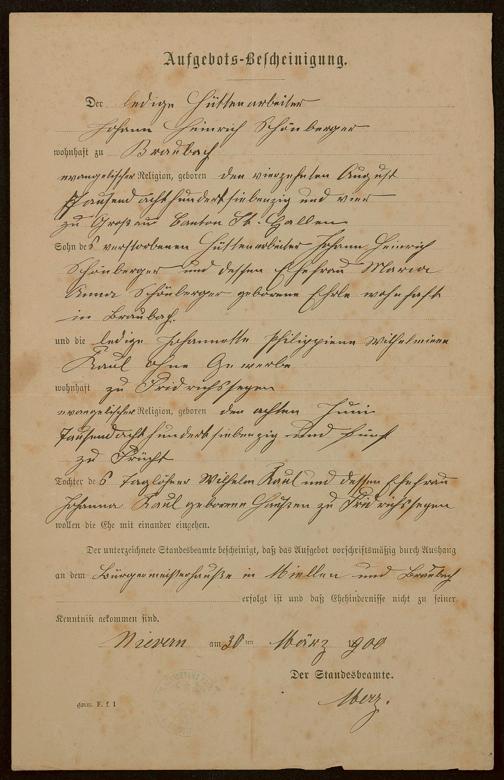 Aufgebots-Bescheinigung.
Der ledige Hüttenarbeiter
Johann Heinrich Schönberger
wohnhaft zu Braubach
evangelischer Religion, geboren den vierzehnten August
Tausend achthundert siebenzig und vier
zu Großau Canton St. Gallen
Sohn des verstorbenen Hüttenarbeiter Johann Heinrich
Schönberger und dessen Ehefrau Maria
Anna Schönberger geborene Ehrle wohnhaft
in Braubach.
und die ledige Johannette Philippine Wilhelmine
Kaul ohne Gewerbe
wohnhaft zu Fridrichssegen
evangelischer Religion, geboren den achten Juni
Tausend acht hundert siebenzig und fünf
zu Frücht
Tochter des Taglöhner Wilhelm Kaul und dessen Ehefrau
Johanna Kaul geborene zu Fridrichssegen
wollen die Ehe mit einander eingehen.
Der unterzeichnete Standesbeamte bescheinigt, daß das Aufgebot vorschriftsmäßig durch Aushang
an dem Bürgermeisterhauße in Miellen und Braubach
erfolgt ist und daß Ehehindernisse nicht zu seiner
Kenntniß gekommen sind.
Nievern am 30ten März 1900
Der Standesbeamte.
Merz.
F. f 1